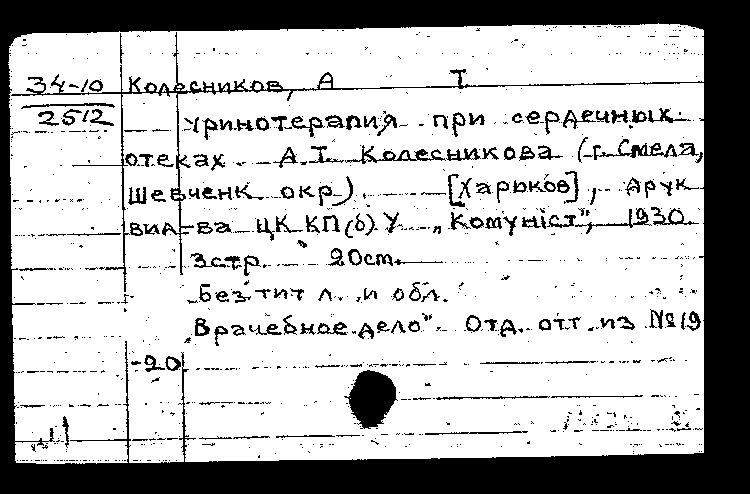 34-10 Колесников, А Т
2512
Уринотерапия при сердечных
отеках. А.Т. Колесникова (г. Смела,
Шевченк. окр). [Харьков], друк
вид-ва ЦК КП(б)У „Комуніст", 1930.
3стр. 20cm.
Без тит л. и обл.
„Врачебное дело". Отд. отт. из №19
-20